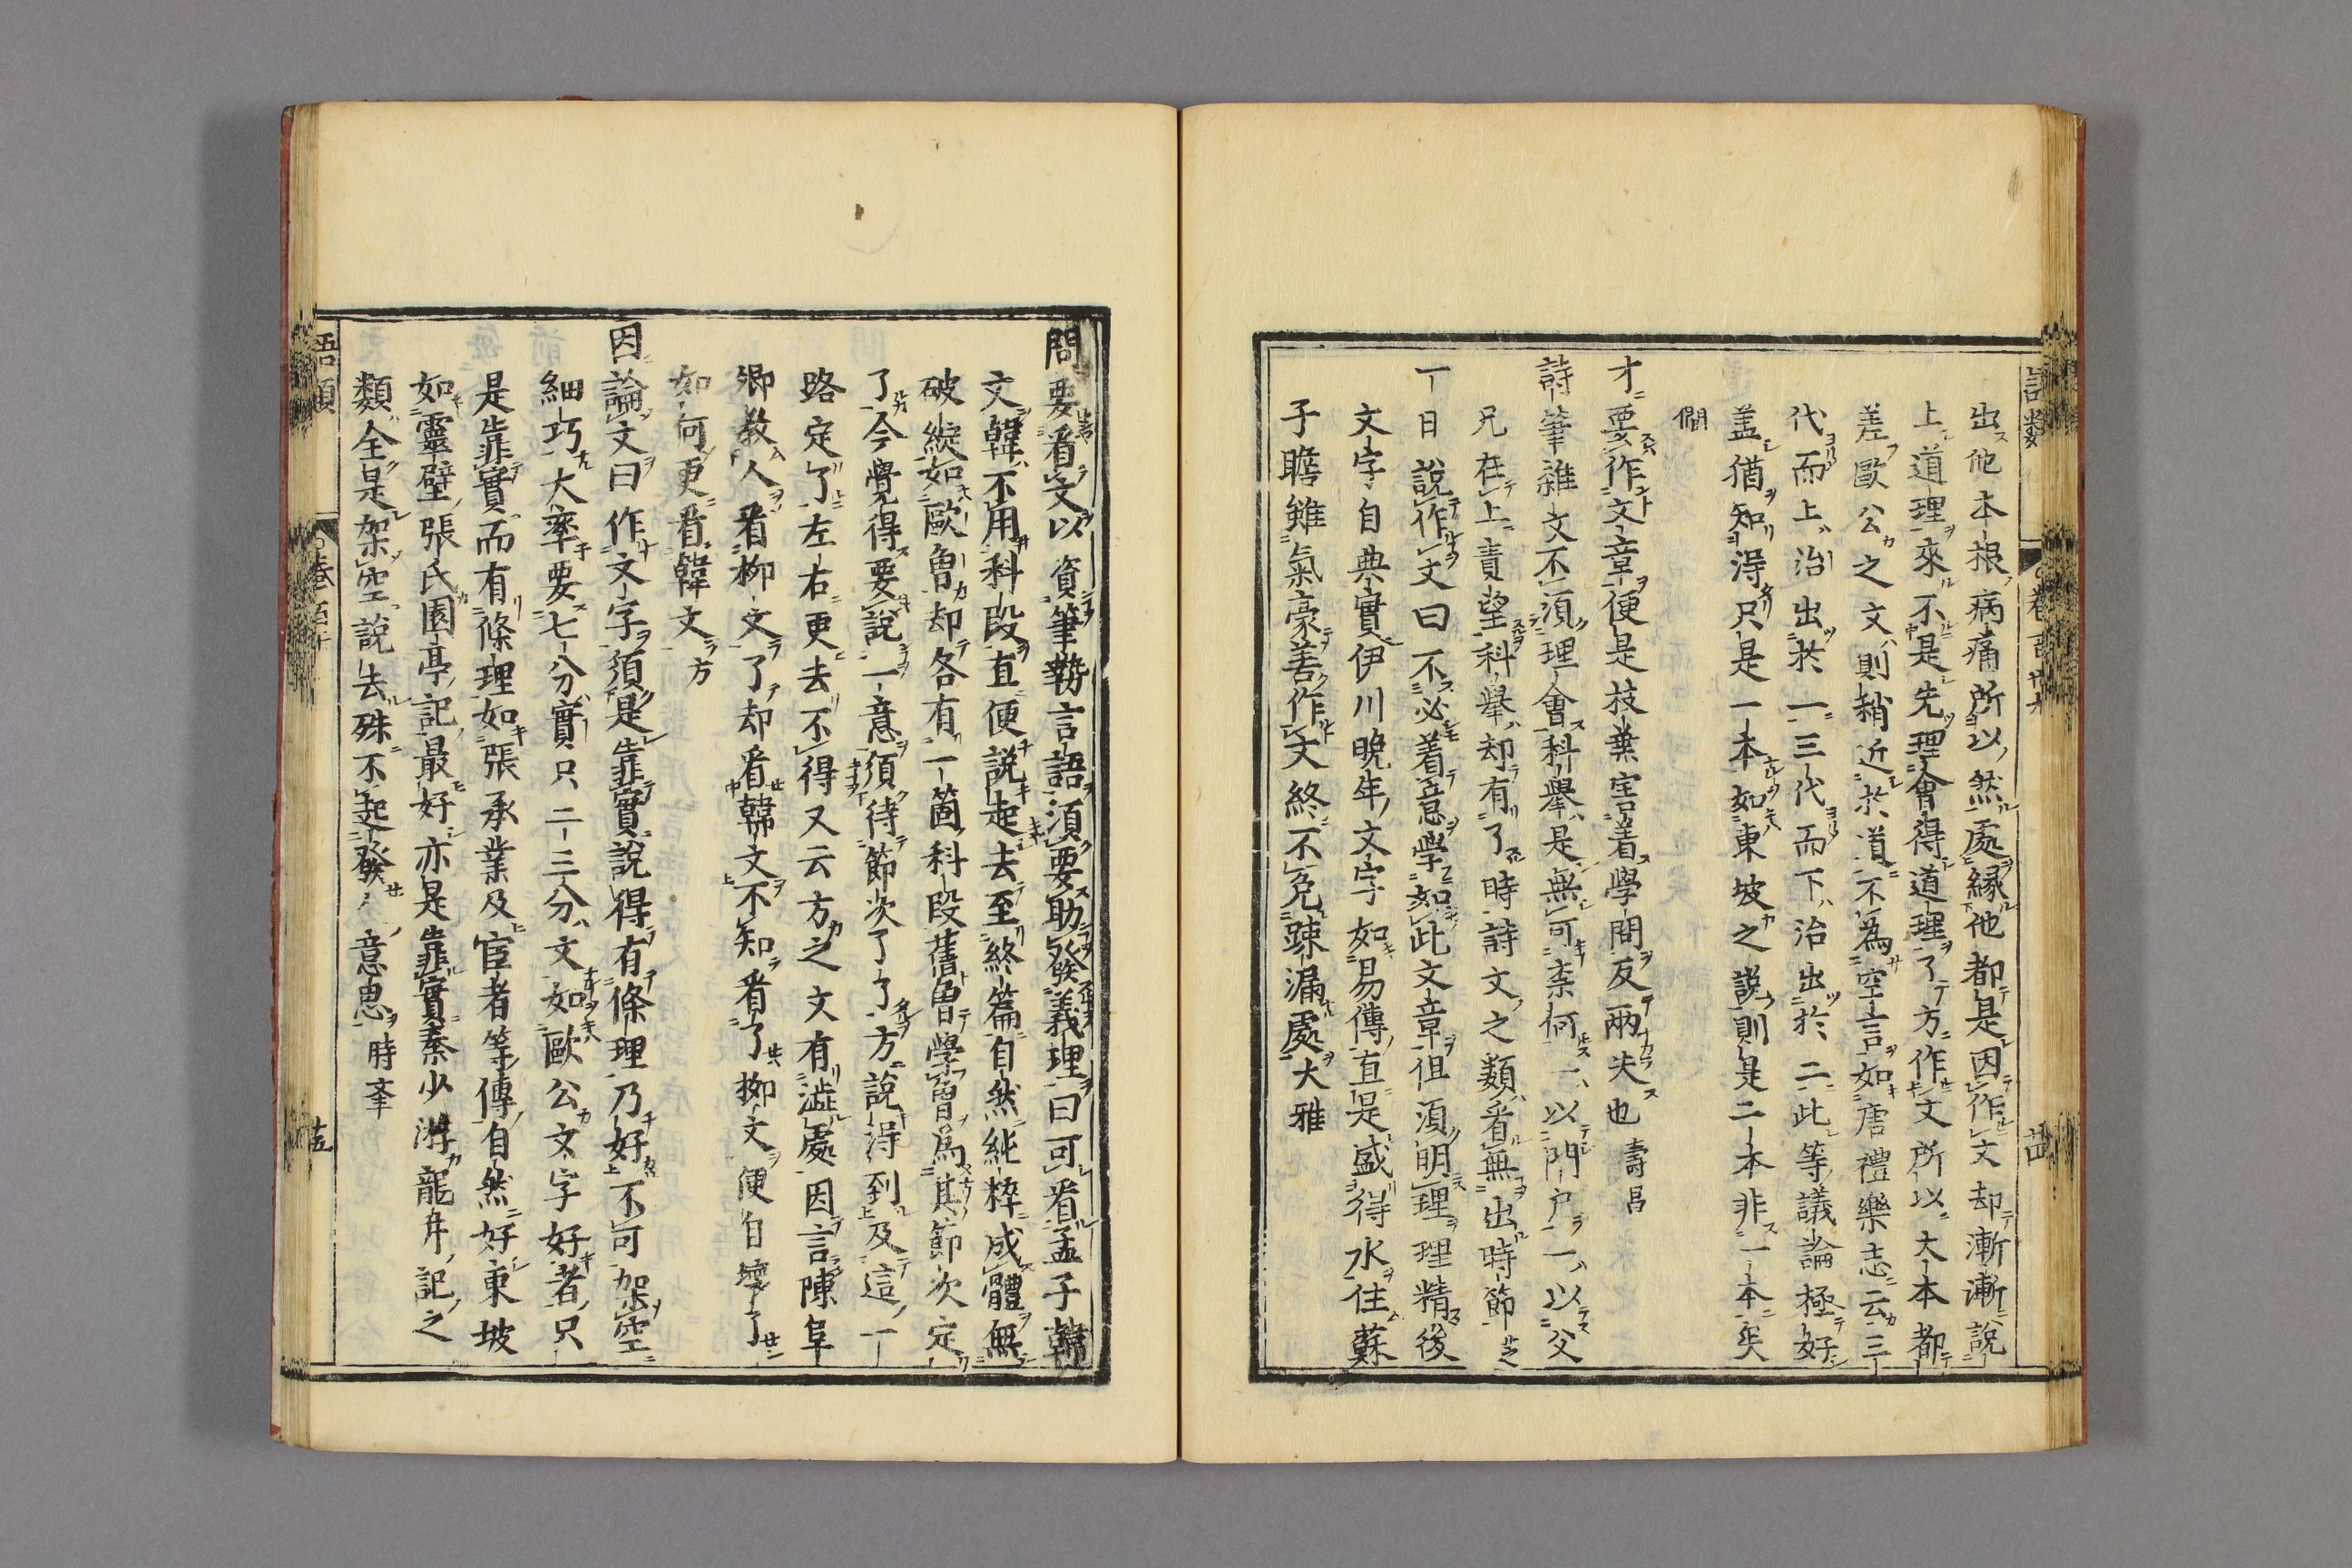 出他本根病痛所以然處縁他都是因作文却漸漸說
上道理來不是先理會得道理了方作文所以大本都
差歐公之文則稍近於道不為空言如唐禮樂志云三
代而上治出於一三代而下治出於二此等議論極好
盖猶知得只是一本如東坡之說則是二本非一本矣
僩
才要作文章便是枝葉害着學問反兩失也 壽昌
詩筆雜文不須理會科舉是無可柰何一以門户一以父
兄在上責望科舉却有了時詩文之類看無出時節 芝
一日說作文曰不必着意學如此文章但須明理理精後
文字自典實伊川晚年文字如易傳直是盛得水住蘇
子瞻雖氣豪善作文終不免疎漏處 大雅
問要看文以資筆勢言語須要助發義理曰可看孟子韓
文韓不用科段直便說起去至終篇自然純粹成體無
破綻如歐曾却各有一箇科段舊曾學曾為其節次定
了今覺得要說一意須待節次了了方說得到及這一
路定了左右更去不得又云方之文有澁處因言陳阜
卿教人看柳文了却看韓文不知看了柳文便自壞了
如何更看韓文 方
因論文曰作文字須是靠實說得有條理乃好不可架空
細巧大率要七分實只二三分文如歐公文字好者只
是靠實而有條理如張承業及宦者等傳自然好東坡
如靈壁張氏園亭記最好亦是靠實秦少游龍井記之
類全是架空說去殊不起發人意思 時舉